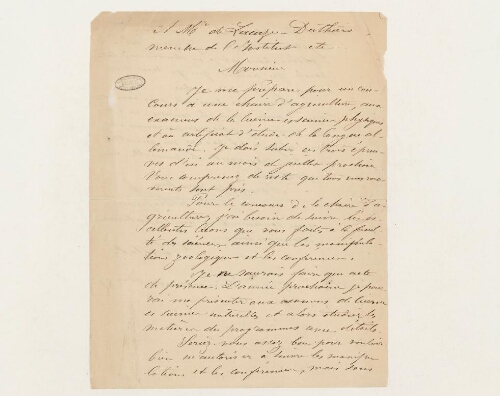 A Mr de Lacaze-Duthiers
membre de l'Institut etc
Monsieur
Je me prépare pour un con-
cours à une chaire d'agriculture, aux
examens de la licence ès sciences physiques
et au certificat d'étude de la langue al-
lemande. Je dois subir ces trois épreu-
ves d'ici au mois de juillet prochain
Vous comprenez de reste que tous mes mo-
ments sont pris.
Pour le concours de la chaire d'a-
griculture j'ai besoin de suivre les ex-
cellentes leçons que vous faites à la facul-
té des sciences ainsi que les manipula-
tions zoologiques et les conférences.
Je ne saurais faire que acte
de présence. L'année prochaine je pour-
rai me présenter aux examens de licence
ès sciences naturelles et alors étudier les
matières du programme avec détails.
Seriez vous assez bon pour vouloir
bien m'autoriser à suivre les manipu-
lations et les conférences, mais sans